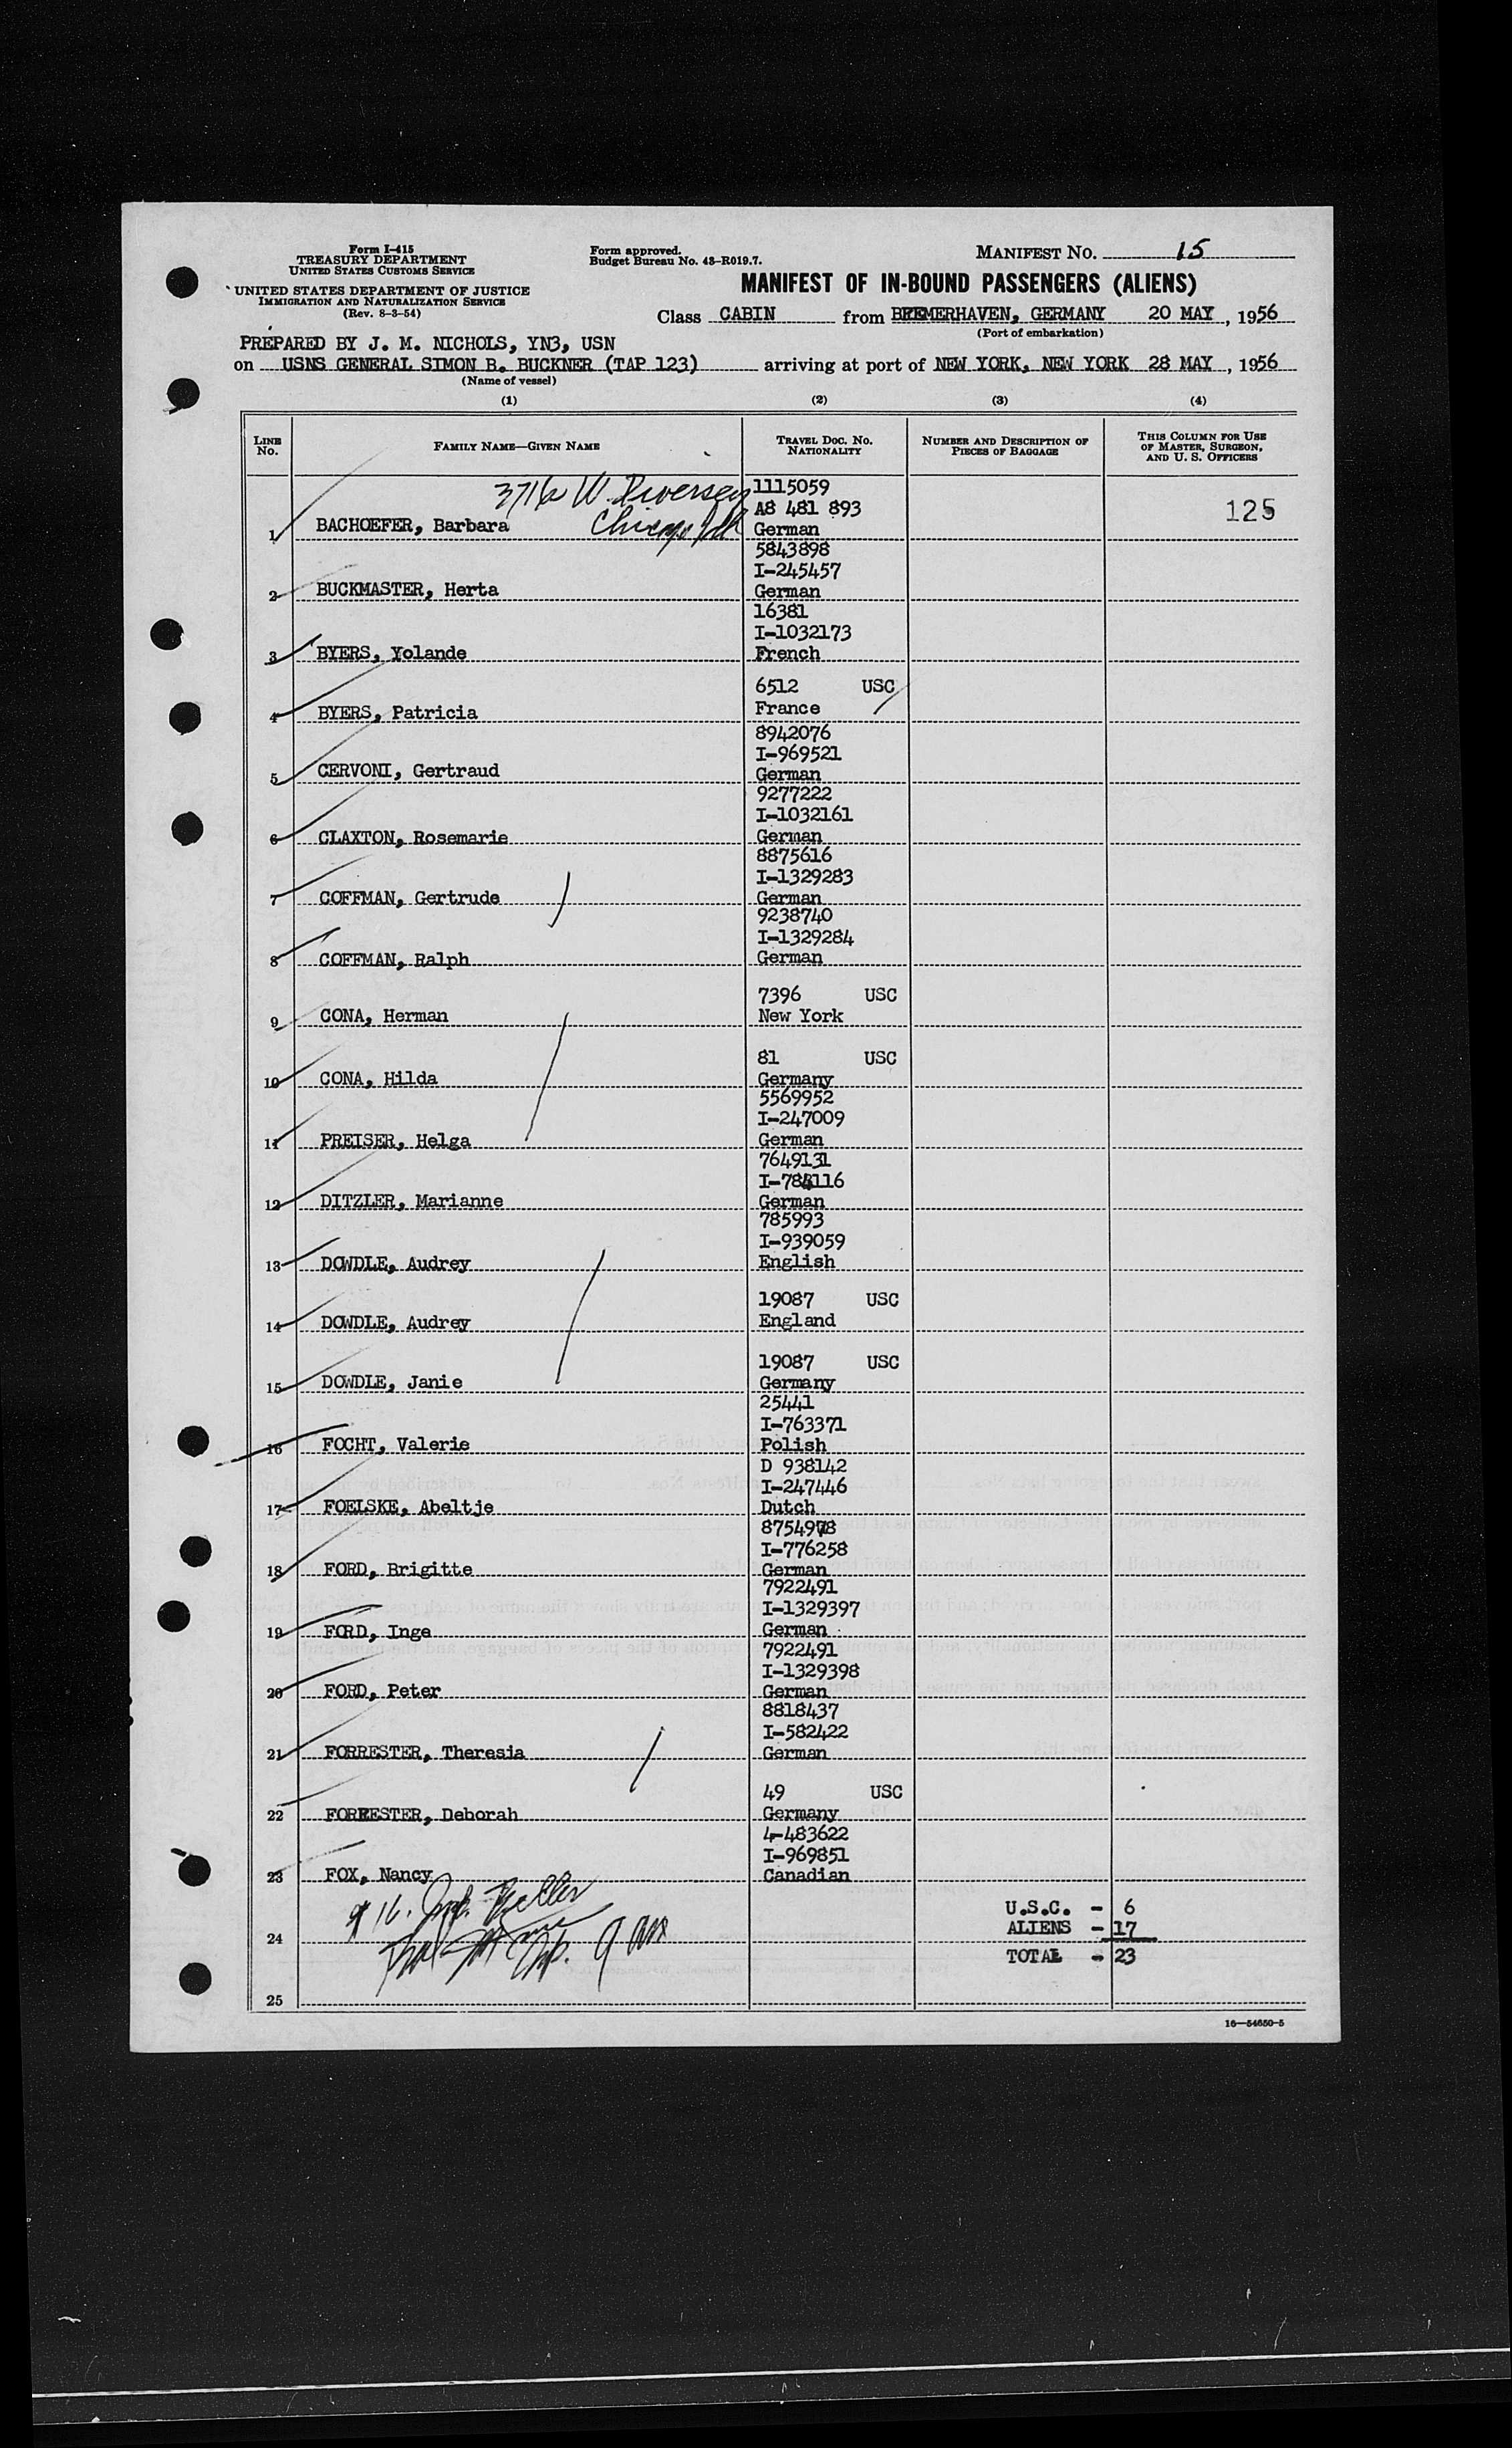 Form I-415
TREASURY DEPARTMENT
UNITED STATES CUSTOMS SERVICE
UNITED STATES DEPARTMENT OF JUSTICE
IMMIGRATION AND NATURALIZATION SERVICE
(Rev. 8-3-54)
Form approved.
Budget Bureau No. 43-R019.7.
MANIFEST NO. 15
MANIFEST OF IN-BOUND PASSENGERS (ALIENS)
Class CABIN from BREMERHAVEN, GERMANY 20 MAY, 1956
(Port of embarkation)
PREPARED BY J. M. NICHOLS, YN3, USN
on USNS GENERAL SIMON B. BUCKNER (TAP 123) arriving at port of NEW YORK, NEW YORK 28 MAY, 1956
(Name of vessel)
(1) (2) (3) (4)
LINE NO. FAMILY NAME—GIVEN NAME TRAVEL DOC. NO. NATIONALITY NUMBER AND DESCRIPTION OF PIECES OF BAGGAGE THIS COLUMN FOR USE OF MASTER, SURGEON, AND U. S. OFFICERS
3716 W. Diversey 1115059
A8 481 893 125
1 BACHOEFER, Barbara Chicago Ill German
5843898
I-245457
2 BUCKMASTER, Herta German
16381
I-1032173
3 BYERS, Yolande French
6512 USC
4 BYERS, Patricia France
8942076
I-969521
5 CERVONI, Gertraud German
9277222
I-1032161
6 CLAXTON, Rosemarie German
8875616
I-1329283
7 COFFMAN, Gertrude German
9238740
I-1329284
8 COFFMAN, Ralph German
7396 USC
9 CONA, Herman New York
81 USC
10 CONA, Hilda Germany
5569952
I-247009
11 PREISER, Helga German
7649131
12 DITZLER, Marianne German
785993
I-939059
13 DOWDLE, Audrey English
19087 USC
14 DOWDLE, Audrey England
19087 USC
15 DOWDLE, Janie Germany
25441
I-763371
16 FOCHT, Valerie Polish
D 938142
I-247446
17 FOELSKE, Abeltje Dutch
8754978
I-776258
18 FORD, Brigitte German
7922491
I-1329397
19 FORD, Inge German
7922491
I-1329398
20 FORD, Peter German
8818437
I-582422
21 FORRESTER, Theresia German
49 USC
22 FORRESTER, Deborah Germany
4-483622
I-969851
23 FOX, Nancy Canadian
U.S.C. - 6
ALIENS - 17
24
TOTAL - 23
25
16—54650-5